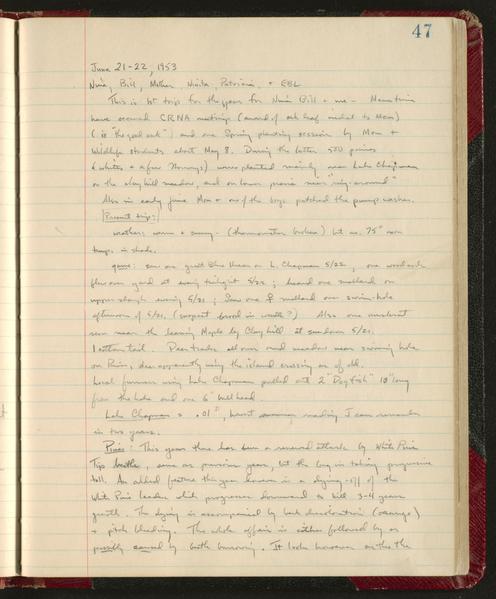 47
June 21-22, 1953
Nina, Bill, Mother, Nieita, Patricia, + EBL
This is 1st trip for the year for Nina Bill + me - Meantime
have occurred CRNA meetings (award of oak leaf medal to Mom)
(is "the good oak") and one Spring planting session by Mom +
Wildlife students about May 8. During the latter 500 pines
(whites + a few Norways) were planted mainly near Lake Chapman
on the clay hill meadow, and on lower prairie near "ring-around"
Also in early June Mom + one of the boys patched the pump washer.
Present trip:
weather: warm + sunny - (thermometer broken) but ca. 75° noon
temp. in shade.
game: saw one great blue heron on L. Chapman 5/22; one woodcock
flew over yard at evening twilight 5/22; heard one mallard on
upper slough evening 5/21; saw one ♀ mallard over swim-hole
afternoon of 5/21. (suspect brood in ?) Also one muskrat
seen near the leaning Maple by Clay hill at sundown 5/21.
1 cottontail. Deer tracks all over sand meadow near swimming hole
on River, deer apparently using the island crossing as of old.
Local farmers using Lake Chapman pulled out 2 "Dogfish" 10" long
from the lake and one 6" bullhead
Lake Chapman = .01", lowest summer reading I can remember
in two years.
Pines: This year there has been a renewed attack by White Pine
Tip beetle, same as previous years, but the bug is taking progressive
toll. An added feature this year however is a dying-off of the
White Pine leader which progresses downward to kill 3-4 years
growth. The dying is accompanied by bark discoloration (orange)
+ pitch bleeding. The whole affair is either followed by or
possibly caused by beetle burrowing. It looks however as tho the